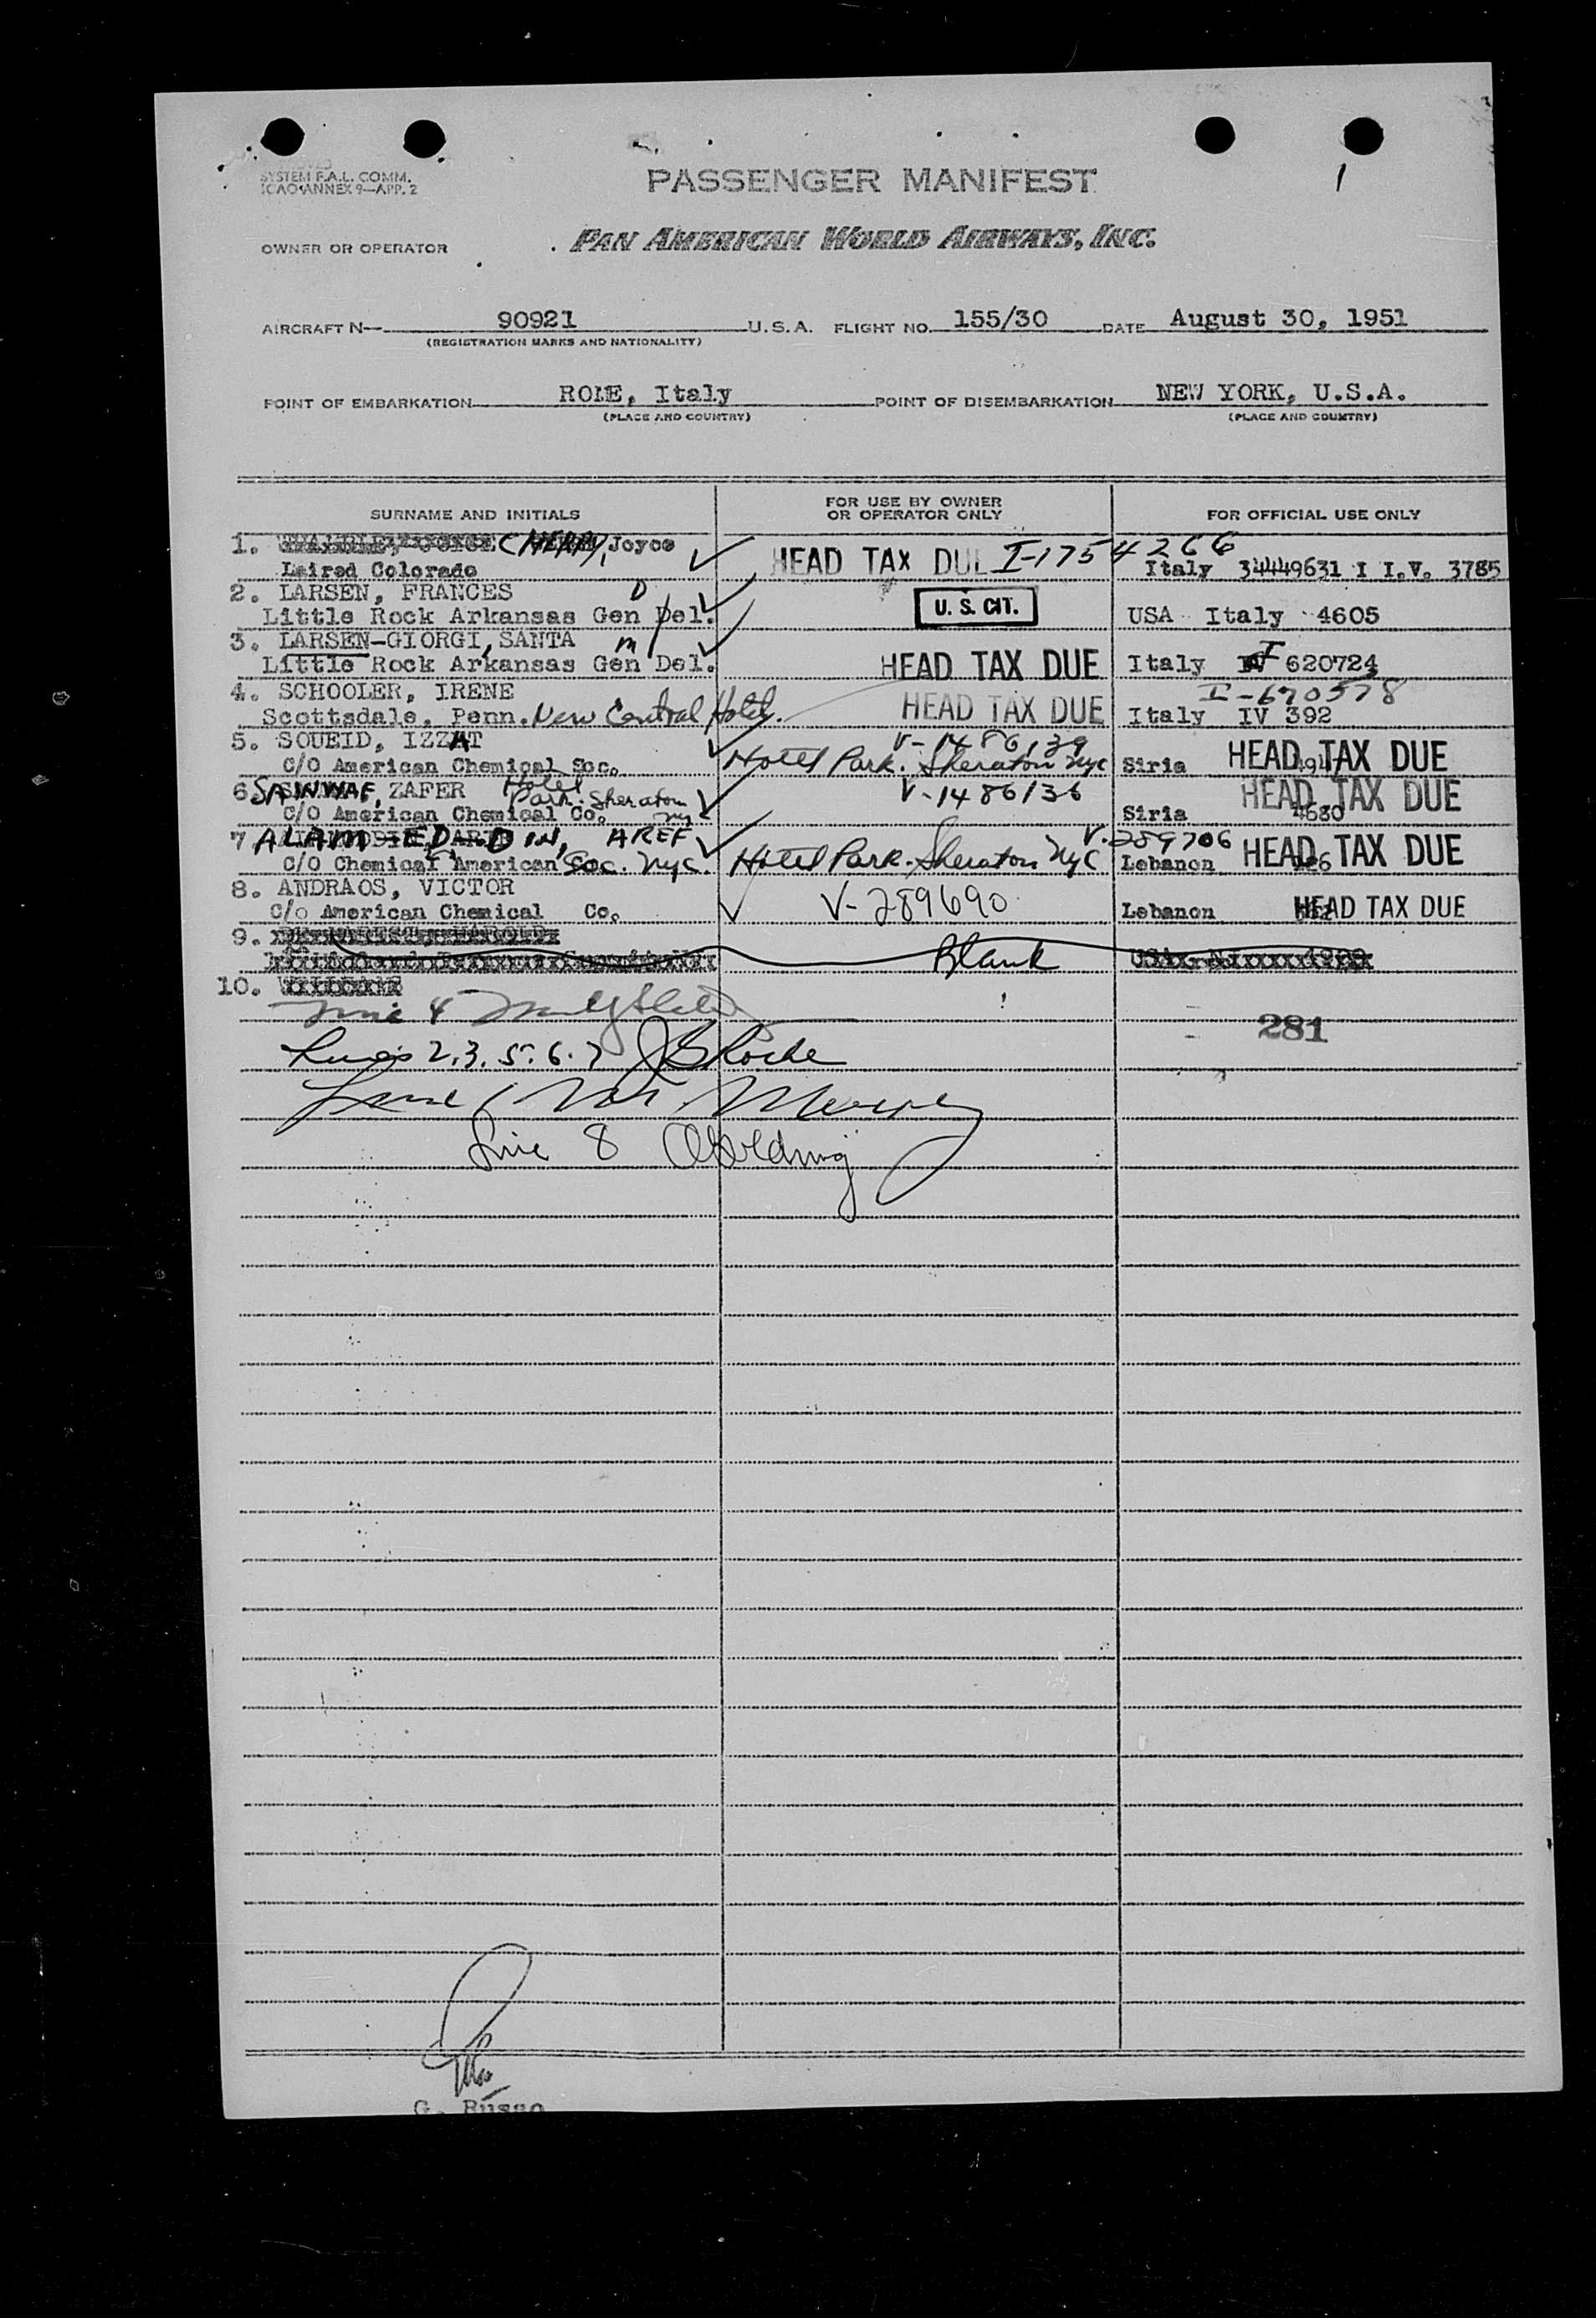 SYSTEM F.A.L. COMM.
ICAO ANNEX 9—APP. 2
PASSENGER MANIFEST
1
OWNER OR OPERATOR PAN AMERICAN WORLD AIRWAYS, INC.
AIRCRAFT N— 90921 U.S.A. FLIGHT NO. 155/30 DATE August 30, 1951
(REGISTRATION MARKS AND NATIONALITY)
POINT OF EMBARKATION ROME, Italy POINT OF DISEMBARKATION NEW YORK, U.S.A.
(PLACE AND COUNTRY) (PLACE AND COUNTRY)
SURNAME AND INITIALS FOR USE BY OWNER OR OPERATOR ONLY FOR OFFICIAL USE ONLY
1. CHERRY, Joyce HEAD TAX DUE I-1754266
Laired Colorado Italy 34449631 I I.V. 3785
2. LARSEN, FRANCES D
Little Rock Arkansas Gen Del. U. S. CIT. USA Italy 4605
3. LARSEN-GIORGI, SANTA m
Little Rock Arkansas Gen Del. HEAD TAX DUE Italy I 620724
4. SCHOOLER, IRENE I-670578
Scottsdale, Penn. New Central Hotel. HEAD TAX DUE Italy IV 392
5. SOUEID, IZZAT V-1486139
C/O American Chemical Soc. Hotel Park-Sheraton NYC Siria HEAD TAX DUE
6. SAWWAF, ZAFER Hotel Park-Sheraton NY V-1486136
C/O American Chemical Co. Siria 4680 HEAD TAX DUE
7 ALAM-EDDIN, AREF V-289706
C/O Chemical American Soc. NYC. Hotel Park-Sheraton NYC Lebanon HEAD TAX DUE
8. ANDRAOS, VICTOR
C/o American Chemical Co. V-289690 Lebanon HEAD TAX DUE
9. Blank
10.
Line 4
281
Lines 2.3.5.6.7 JB Roche
Line 1
Line 8
G. Russo